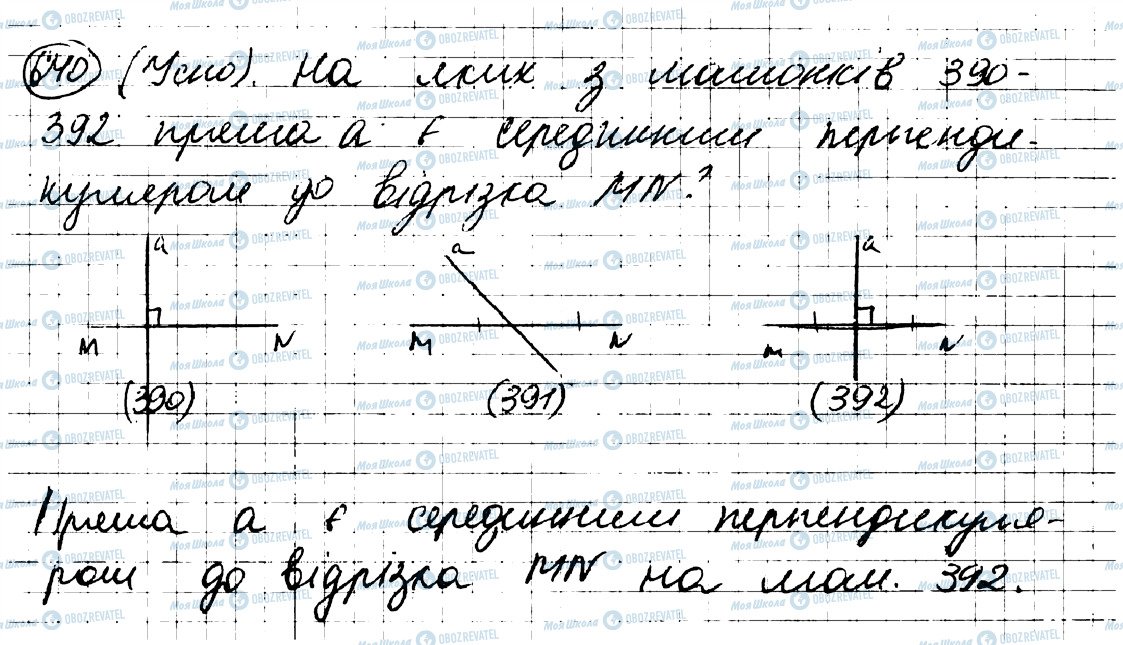 640 (Усно). На яких з малюнків 390-
392 пряма a є серединним перпенди-
куляром до відрізка MN?
a
M N
(390)
a
M N
(391)
a
M N
(392)
Пряма a є серединним перпендикуля-
ром до відрізка MN на мал. 392.